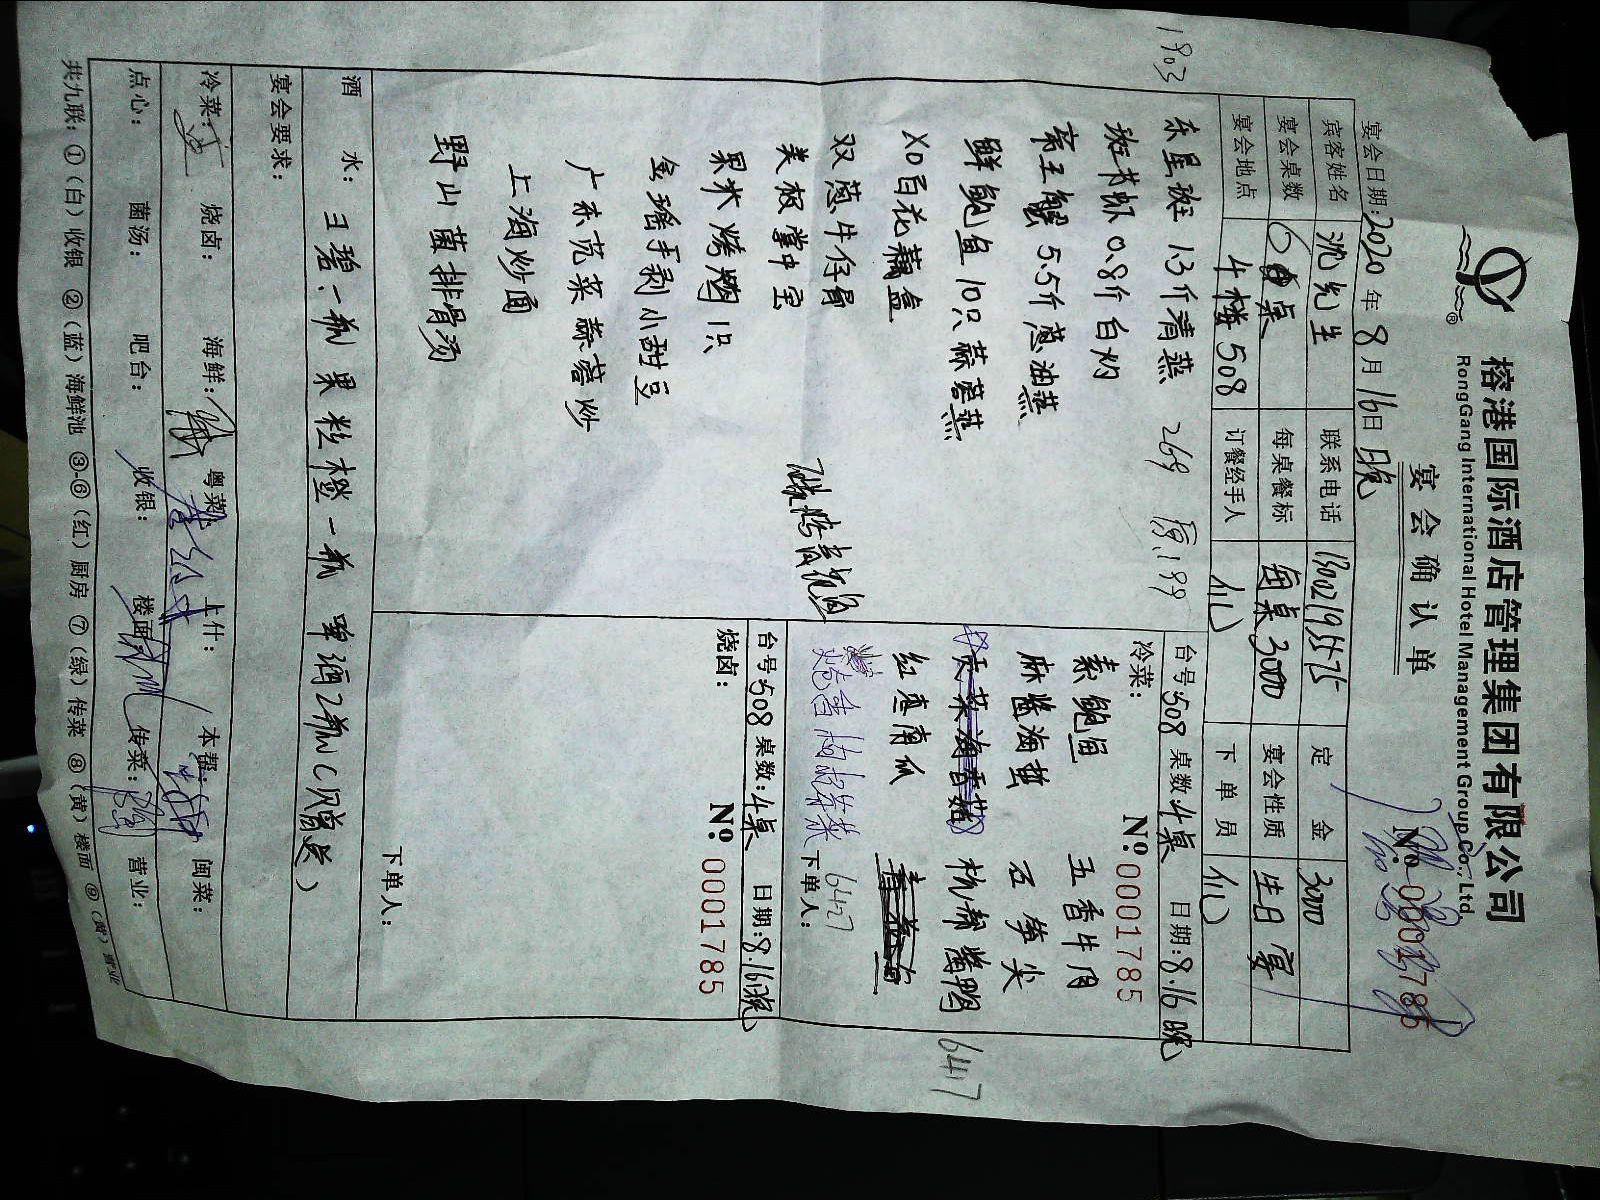 榕港国际酒店管理集团有限公司
RongGang International Hotel Management Group Co., Ltd.
宴会确认单
№ 0001785
宴会日期:2020年8月16日晚
宾客姓名 沈先生 联系电话 13002195575 定金 3000
宴会桌数 6桌 每桌餐标 每桌3000 宴会性质 生日宴
宴会地点 4楼508 订餐经手人 下单员
1903
东星斑 1.3斤清蒸 269
斑节虾 0.8斤白灼
帝王蟹 5.5斤葱油蒸
鲜鲍鱼10只蒜蓉蒸
XO百花藕盒
双葱牛仔骨
美极掌中宝
果木烤鸭1只
金瑶手剥小甜豆
广东芥菜蒜蓉炒
上海炒面
野山菌排骨汤
台号508 桌数:4桌 日期:8.16晚
冷菜: № 0001785
素鲍鱼 五香牛肉
麻酱海蜇 石笋尖
杭帮酱鸭
红枣南瓜
6427
6417
下单人:
台号508 桌数:4桌 日期:8.16晚
烧卤: № 0001785
下单人:
酒水: 王碧:一瓶 果粒橙一瓶 啤酒2瓶(只赠送)
宴会要求:
冷菜: 烧卤: 海鲜: 粤菜: 上什: 本帮: 闽菜:
点心: 菌汤: 吧台: 收银: 楼面: 传菜: 营业:
共九联: ①(白)收银 ②(蓝)海鲜池 ③-⑥(红)厨房 ⑦(绿)传菜 ⑧(黄)楼面 ⑨(黄)营业